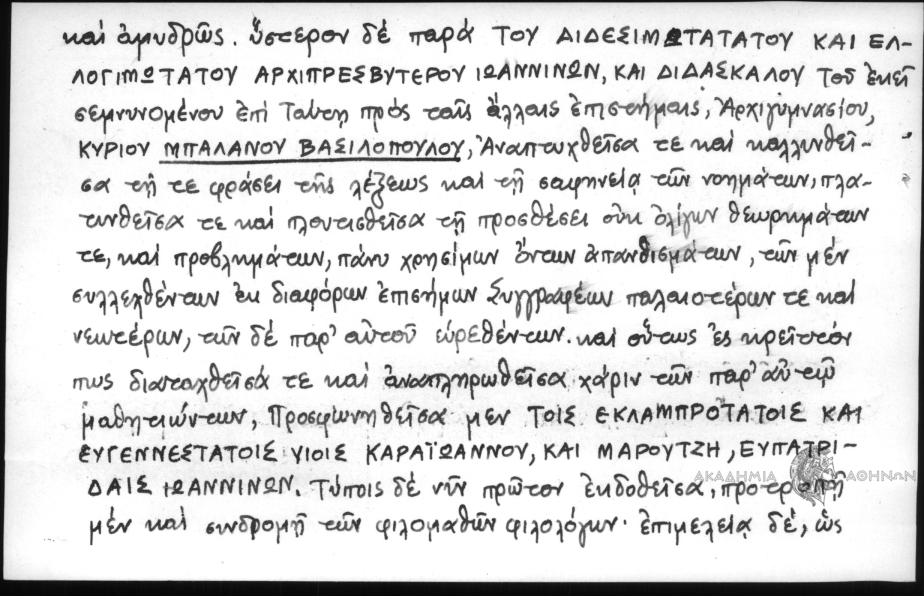 καί ἀμυδρῶς. ὕστερον δέ παρά ΤΟΥ ΑΙΔΕΣΙΜΩΤΑΤΑΤΟΥ ΚΑΙ ΕΛ-
ΛΟΓΙΜΩΤΑΤΟΥ ΑΡΧΙΠΡΕΣΒΥΤΕΡΟΥ ΙΩΑΝΝΙΝΩΝ, ΚΑΙ ΔΙΔΑΣΚΑΛΟΥ Τοῦ ἐκεῖ
σεμνυνομένου ἐπί Ταύτῃ πρός ταῖς ἄλλαις ἐπιστήμαις, Ἀρχιγυμνασίου,
ΚΥΡΙΟΥ ΜΠΑΛΑΝΟΥ ΒΑΣΙΛΟΠΟΥΛΟΥ, Ἀναπτυχθεῖσα τε καί καλλυνθεῖ-
σα τῇ τε φράσει τῆς λέξεως καί τῇ σαφηνείᾳ τῶν νοημάτων, πλα-
τυνθεῖσα τε καί πλουτισθεῖσα τῇ προσθέσει οὐκ ὀλίγων θεωρημάτων
τε, καί προβλημάτων, πάνυ χρησίμων ὄντων ἀπανθισμάτων, τῶν μέν
συλλεχθέντων ἐκ διαφόρων ἐπισήμων Συγγραφέων παλαιοτέρων τε καί
νεωτέρων, τῶν δέ παρ' αὐτοῦ εὑρεθέντων. καί οὕτως ἐς κρεῖττόν
πως διαταχθεῖσά τε καί ἀναπληρωθεῖσα χάριν τῶν παρ' αὐτῷ
μαθητιώντων, Προσφωνηθεῖσα μέν ΤΟΙΣ ΕΚΛΑΜΠΡΟΤΑΤΟΙΣ ΚΑΙ
ΕΥΓΕΝΝΕΣΤΑΤΟΙΣ ΥΙΟΙΣ ΚΑΡΑΪΩΑΝΝΟΥ, ΚΑΙ ΜΑΡΟΥΤΖΗ, ΕΥΠΑΤΡΙ-
ΔΑΙΣ ΙΩΑΝΝΙΝΩΝ. Τύποις δέ νῦν πρῶτον ἐκδοθεῖσα, προτροπῇ
μέν καί συνδρομῇ τῶν φιλομαθῶν φιλολόγων· ἐπιμελείᾳ δέ, ὡς
ΑΚΑΔΗΜΙΑ ΑΘΗΝΩΝ